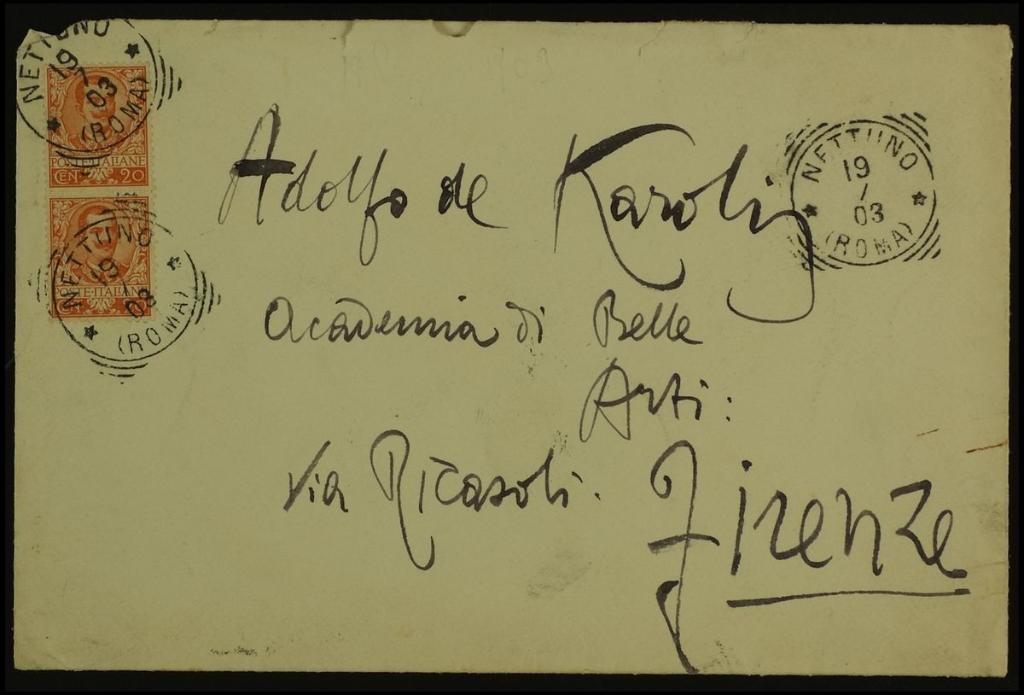 NETTUNO
19
/
03
(ROMA)
POSTE·ITALIANE
CEN. 20
NETTUNO
19
/
03
(ROMA)
POSTE·ITALIANE
NETTUNO
19
/
03
(ROMA)
Adolfo de Karolis
Academia di Belle
Arti:
Via Ricasoli.
Firenze